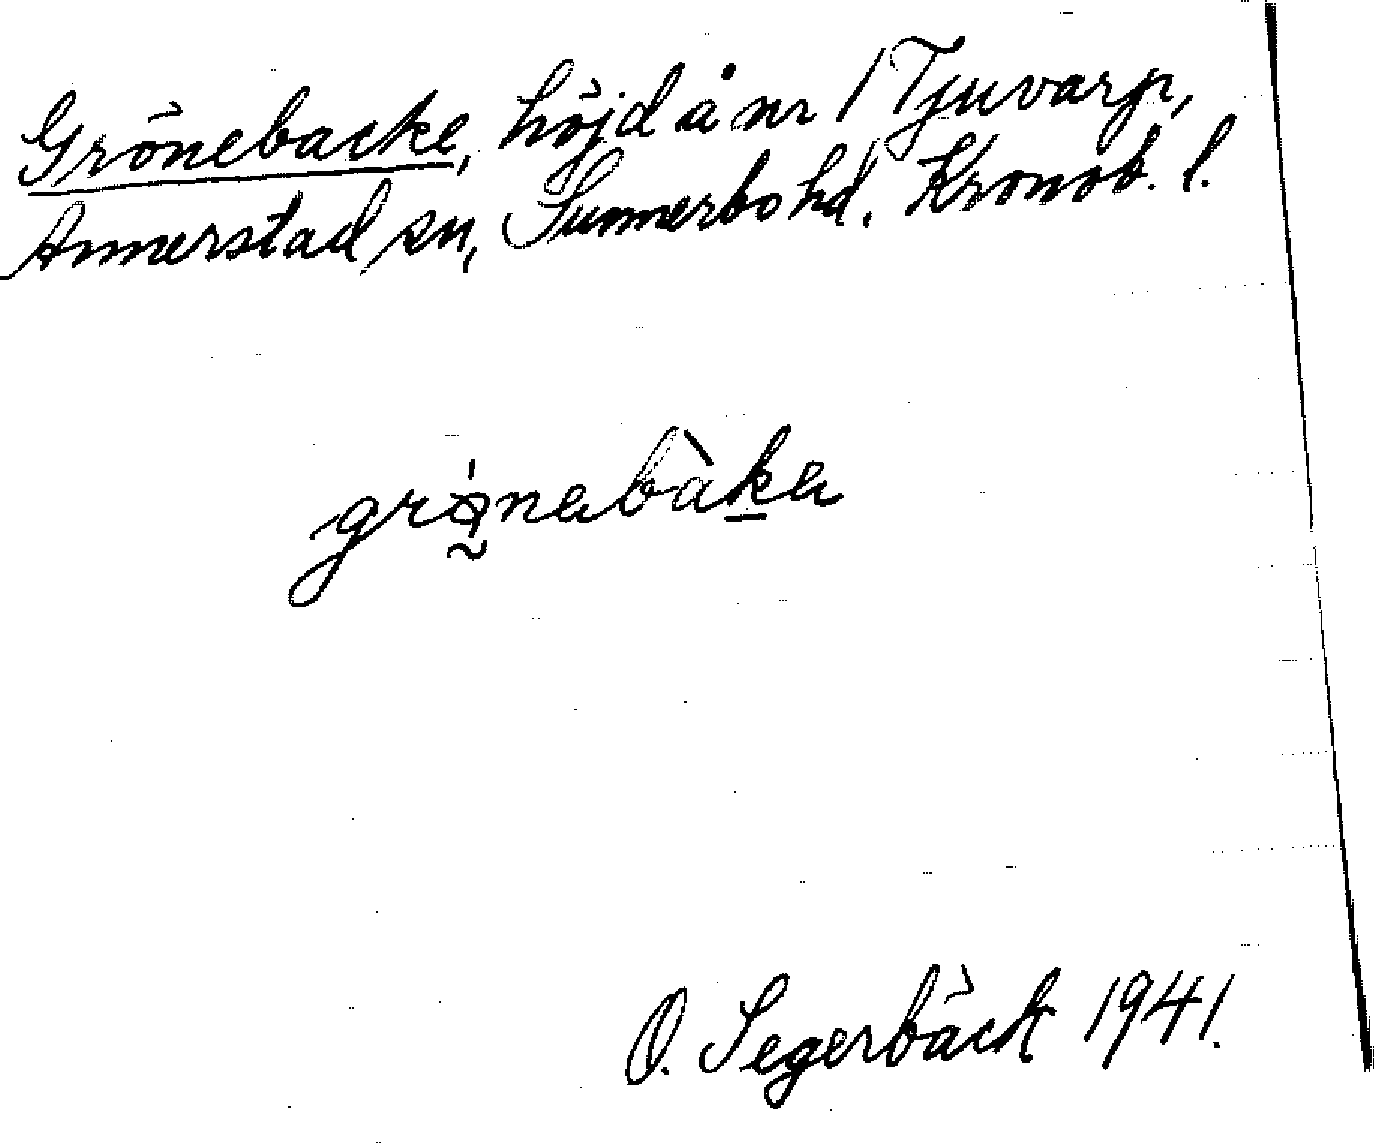 Grönebacke, höjd å nr 1 Tjuvarp,
Annerstad sn, Sunnerbo hd. Kronob. l.
grø̀nabàka
O. Segerbäck 1941.